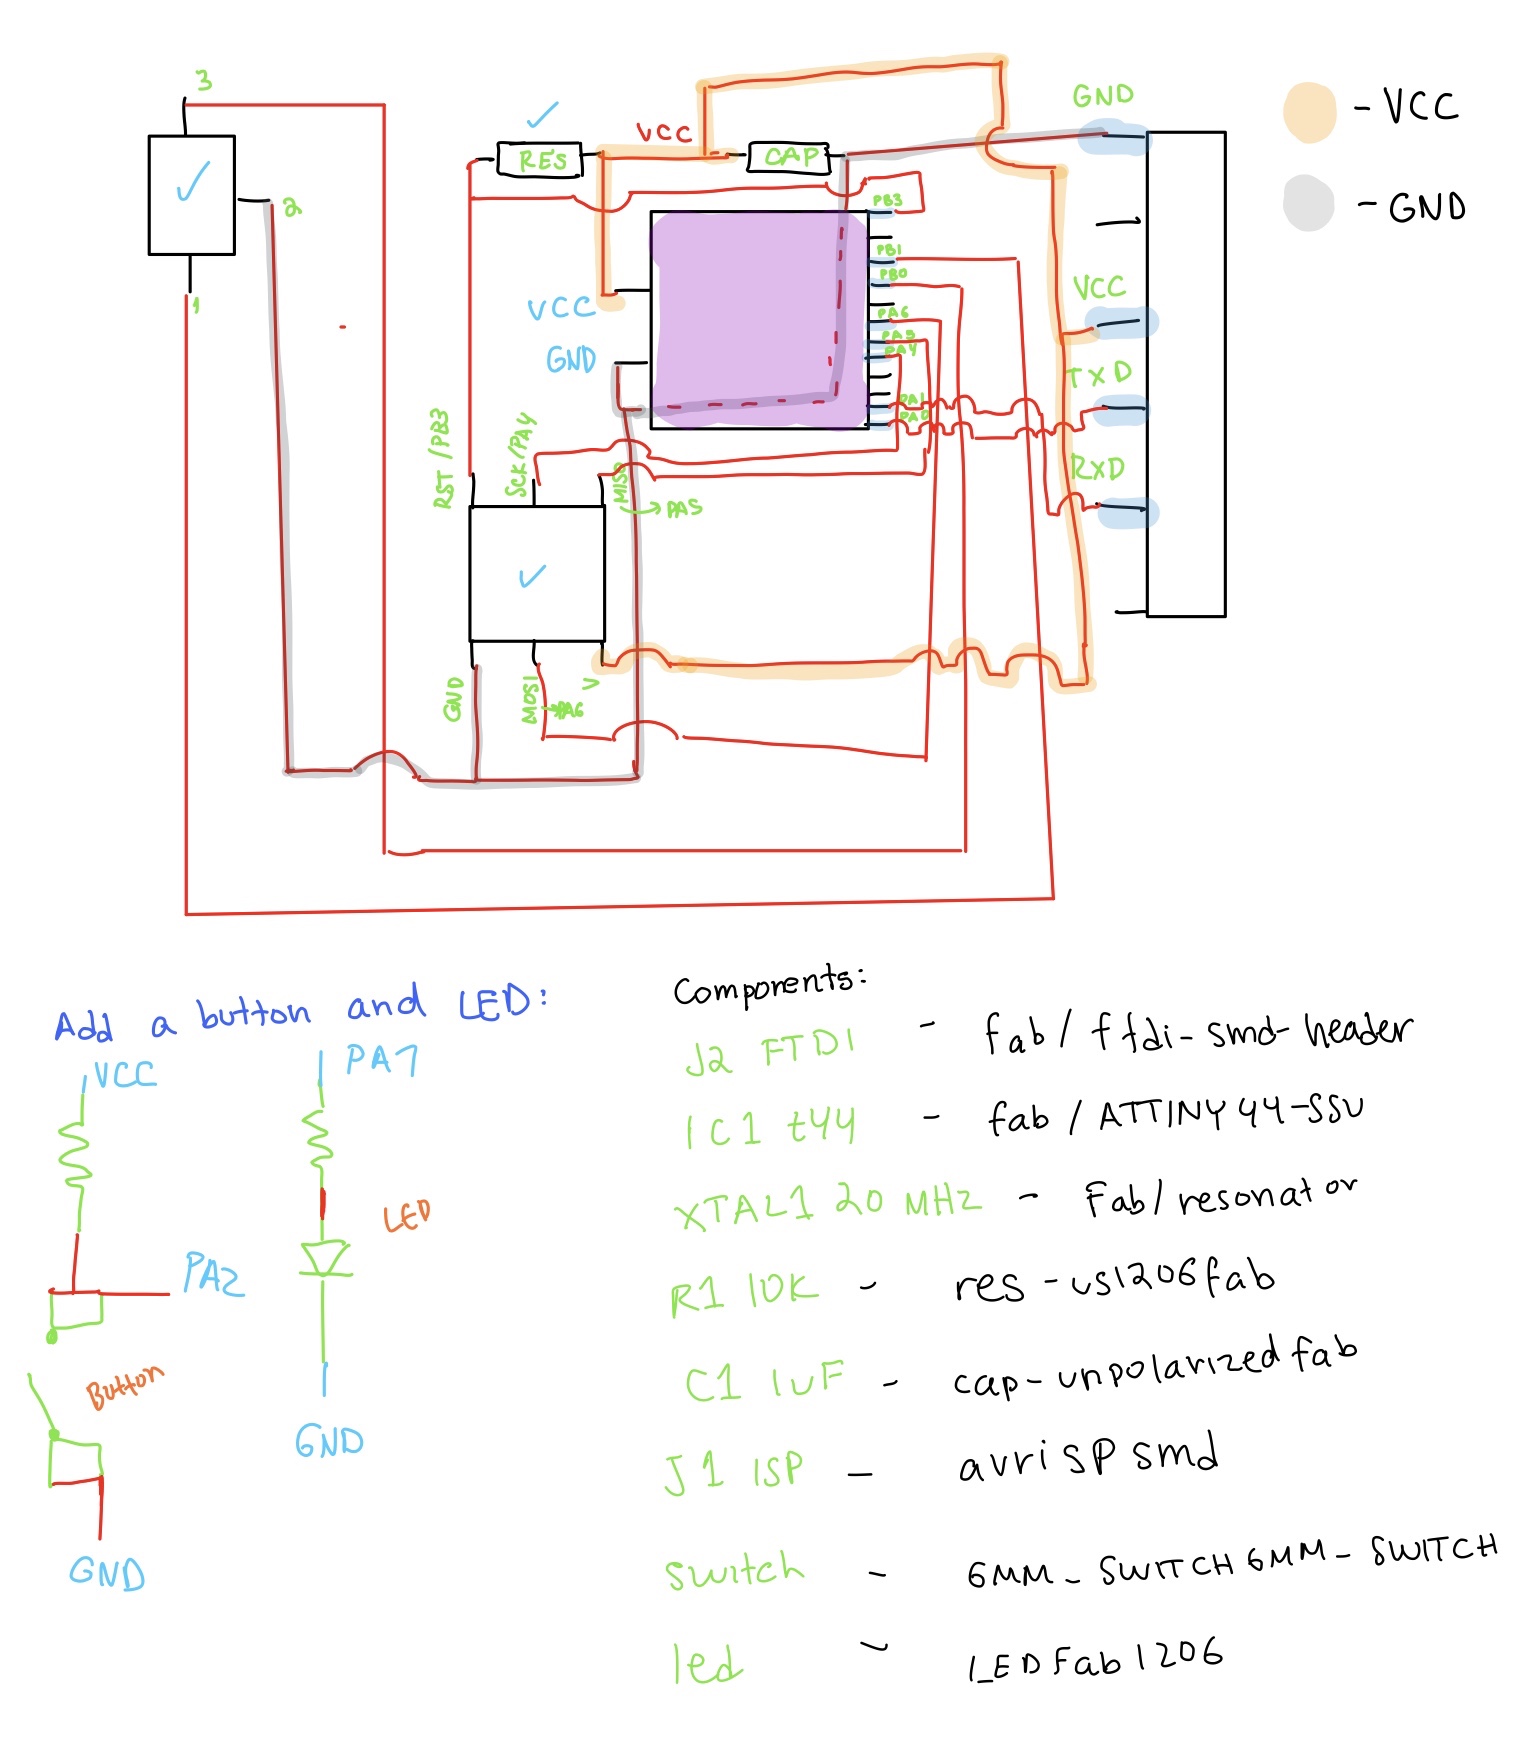 3
2
1
RES
VCC
CAP
GND
- VCC
- GND
PB3
PB1
PB0
PA6
PA5
PA4
PA1
PA0
VCC
GND
VCC
TXD
RXD
RST/PB3
SCK/PA4
MISO
→ PA5
GND
MOSI
→PA6
V
Add a button and LED:
VCC
PA2
Button
GND
PA7
LED
GND
Components:
J2 FTDI - fab/ftdi-smd-header
IC1 t44 - fab/ATTINY44-SSU
XTAL1 20 MHZ - Fab/resonator
R1 10K - res-us1206fab
C1 1uF - cap-unpolarizedfab
J1 ISP - avrispsmd
switch - 6MM_SWITCH6MM_SWITCH
led - LEDFab1206